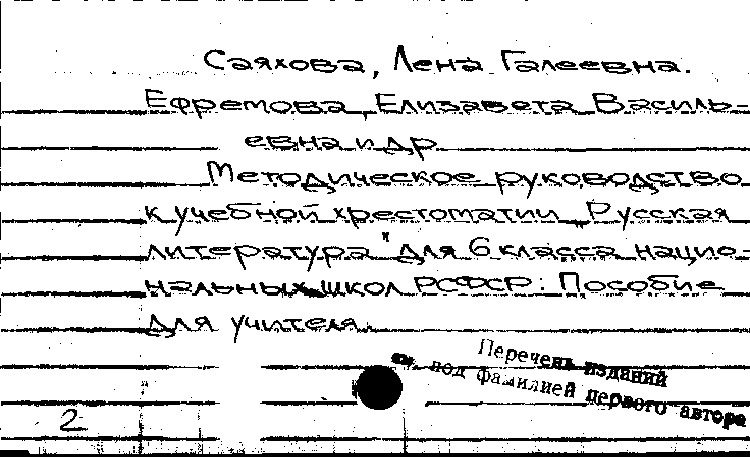 Саяхова, Лена Галеевна.
Ефремова, Елизавета Василь-
евна и др.
Методическое руководство
к учебной хрестоматии „Русская
литература" для 6 класса нацио-
нальных школ РСФСР: Пособие
для учителя.
Перечень изданий
см. под фамилией первого автора
2